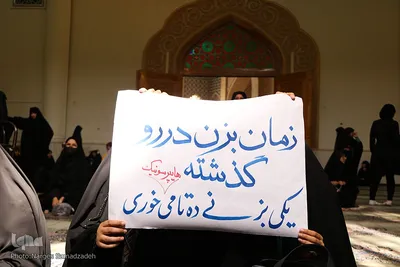 زمان بزن دررو
گذشته هایپرسونیک
یکی بزنے ده تا می خوری
Photo: Narges Bernadzadeh